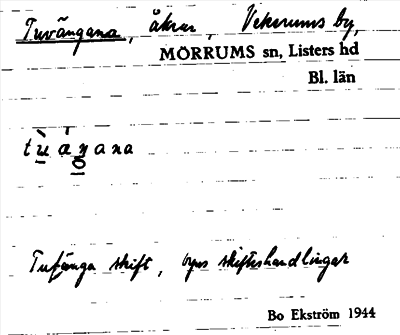 Tuvängana, åkrar, Vekerums by,
MÖRRUMS sn, Listers hd
Bl. län
Tufänga skift, skifteshandlingar
Bo Ekström 1944